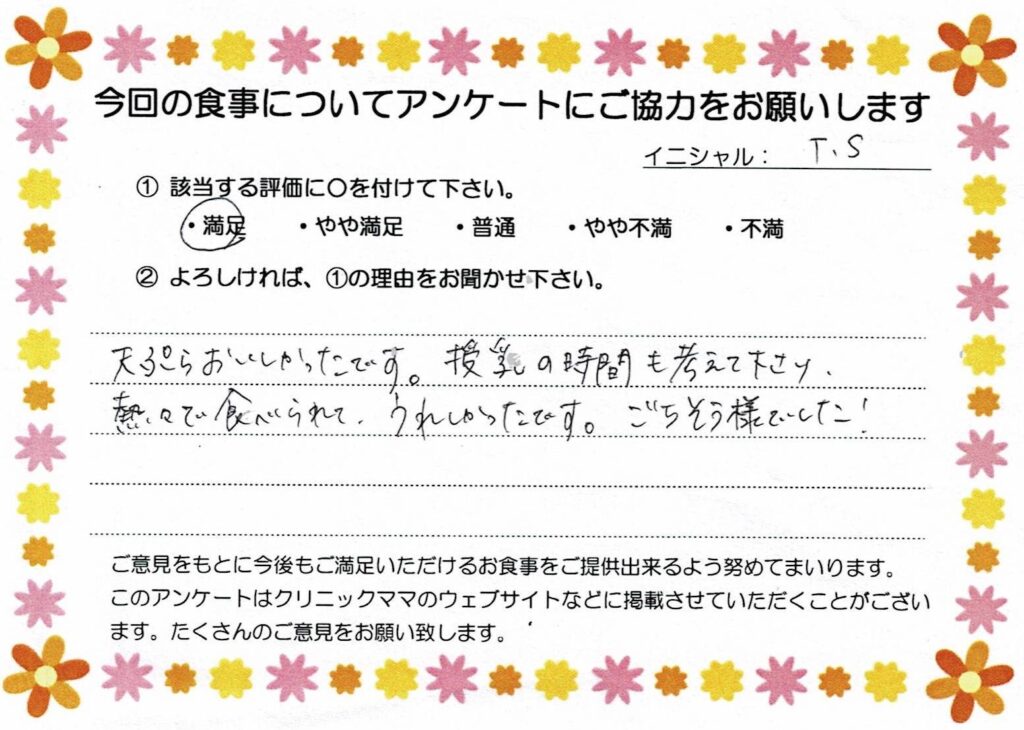 今回の食事についてアンケートにご協力をお願いします
イニシャル： T.S
① 該当する評価に〇を付けて下さい。
・満足 ・やや満足 ・普通 ・やや不満 ・不満
② よろしければ、①の理由をお聞かせ下さい。
天ぷらおいしかったです。授乳の時間も考えて下さり、
熱々で食べられて、うれしかったです。ごちそう様でした！
ご意見をもとに今後もご満足いただけるお食事をご提供出来るよう努めてまいります。
このアンケートはクリニックママのウェブサイトなどに掲載させていただくことがござい
ます。たくさんのご意見をお願い致します。